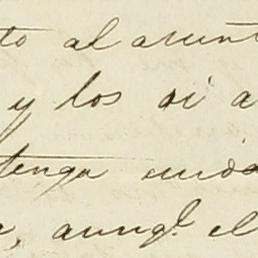 to al asunt
y los oi a
tenga cuida
, aunq.e el